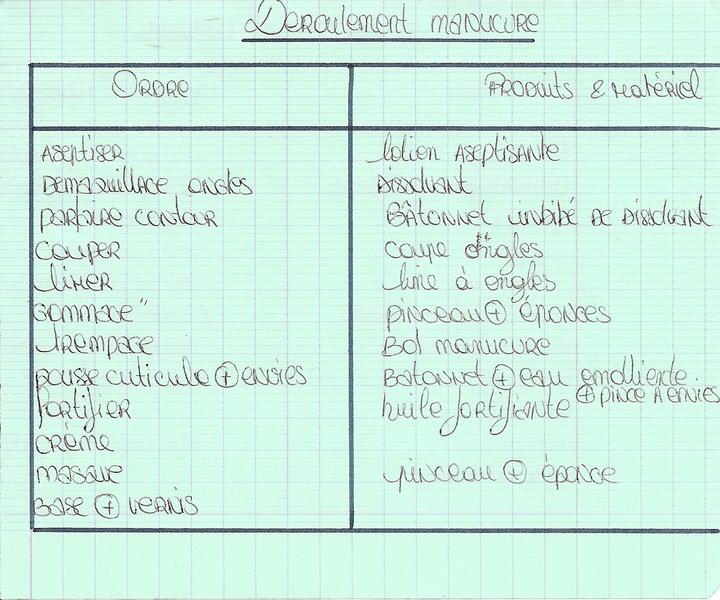 Deroulement manucure
Ordre Produits & Matériel
Aseptiser lotion Aseptisante
Demaquillage ongles Dissolvant
parfaire contour Bâtonnet imbibé de Dissolvant
couper coupe ongles
limer lime à ongles
Gommage " pinceau + éponges
trempage Bol manucure
pousse cuticule + envies Batonnet + eau emolliente.
+ pince à envies
fortifier huile fortifiante
crème
masque pinceau + éponge
Base + vernis